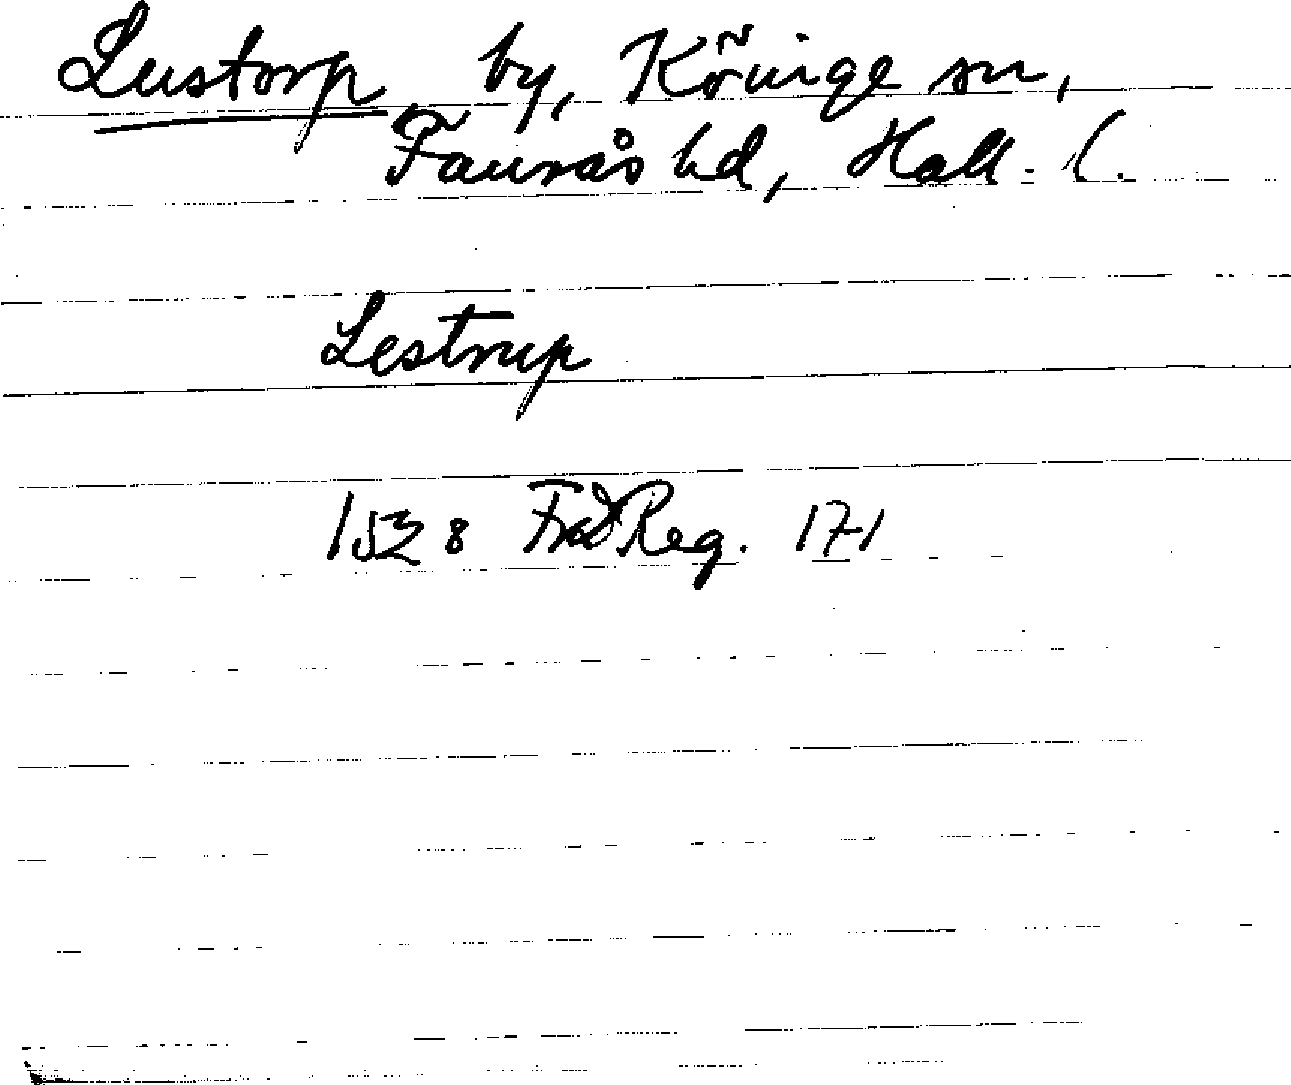 Lustorp by, Köinge sn,
Faurås hd, Hall. l.
Lestrup
1538 FrdReg. 171